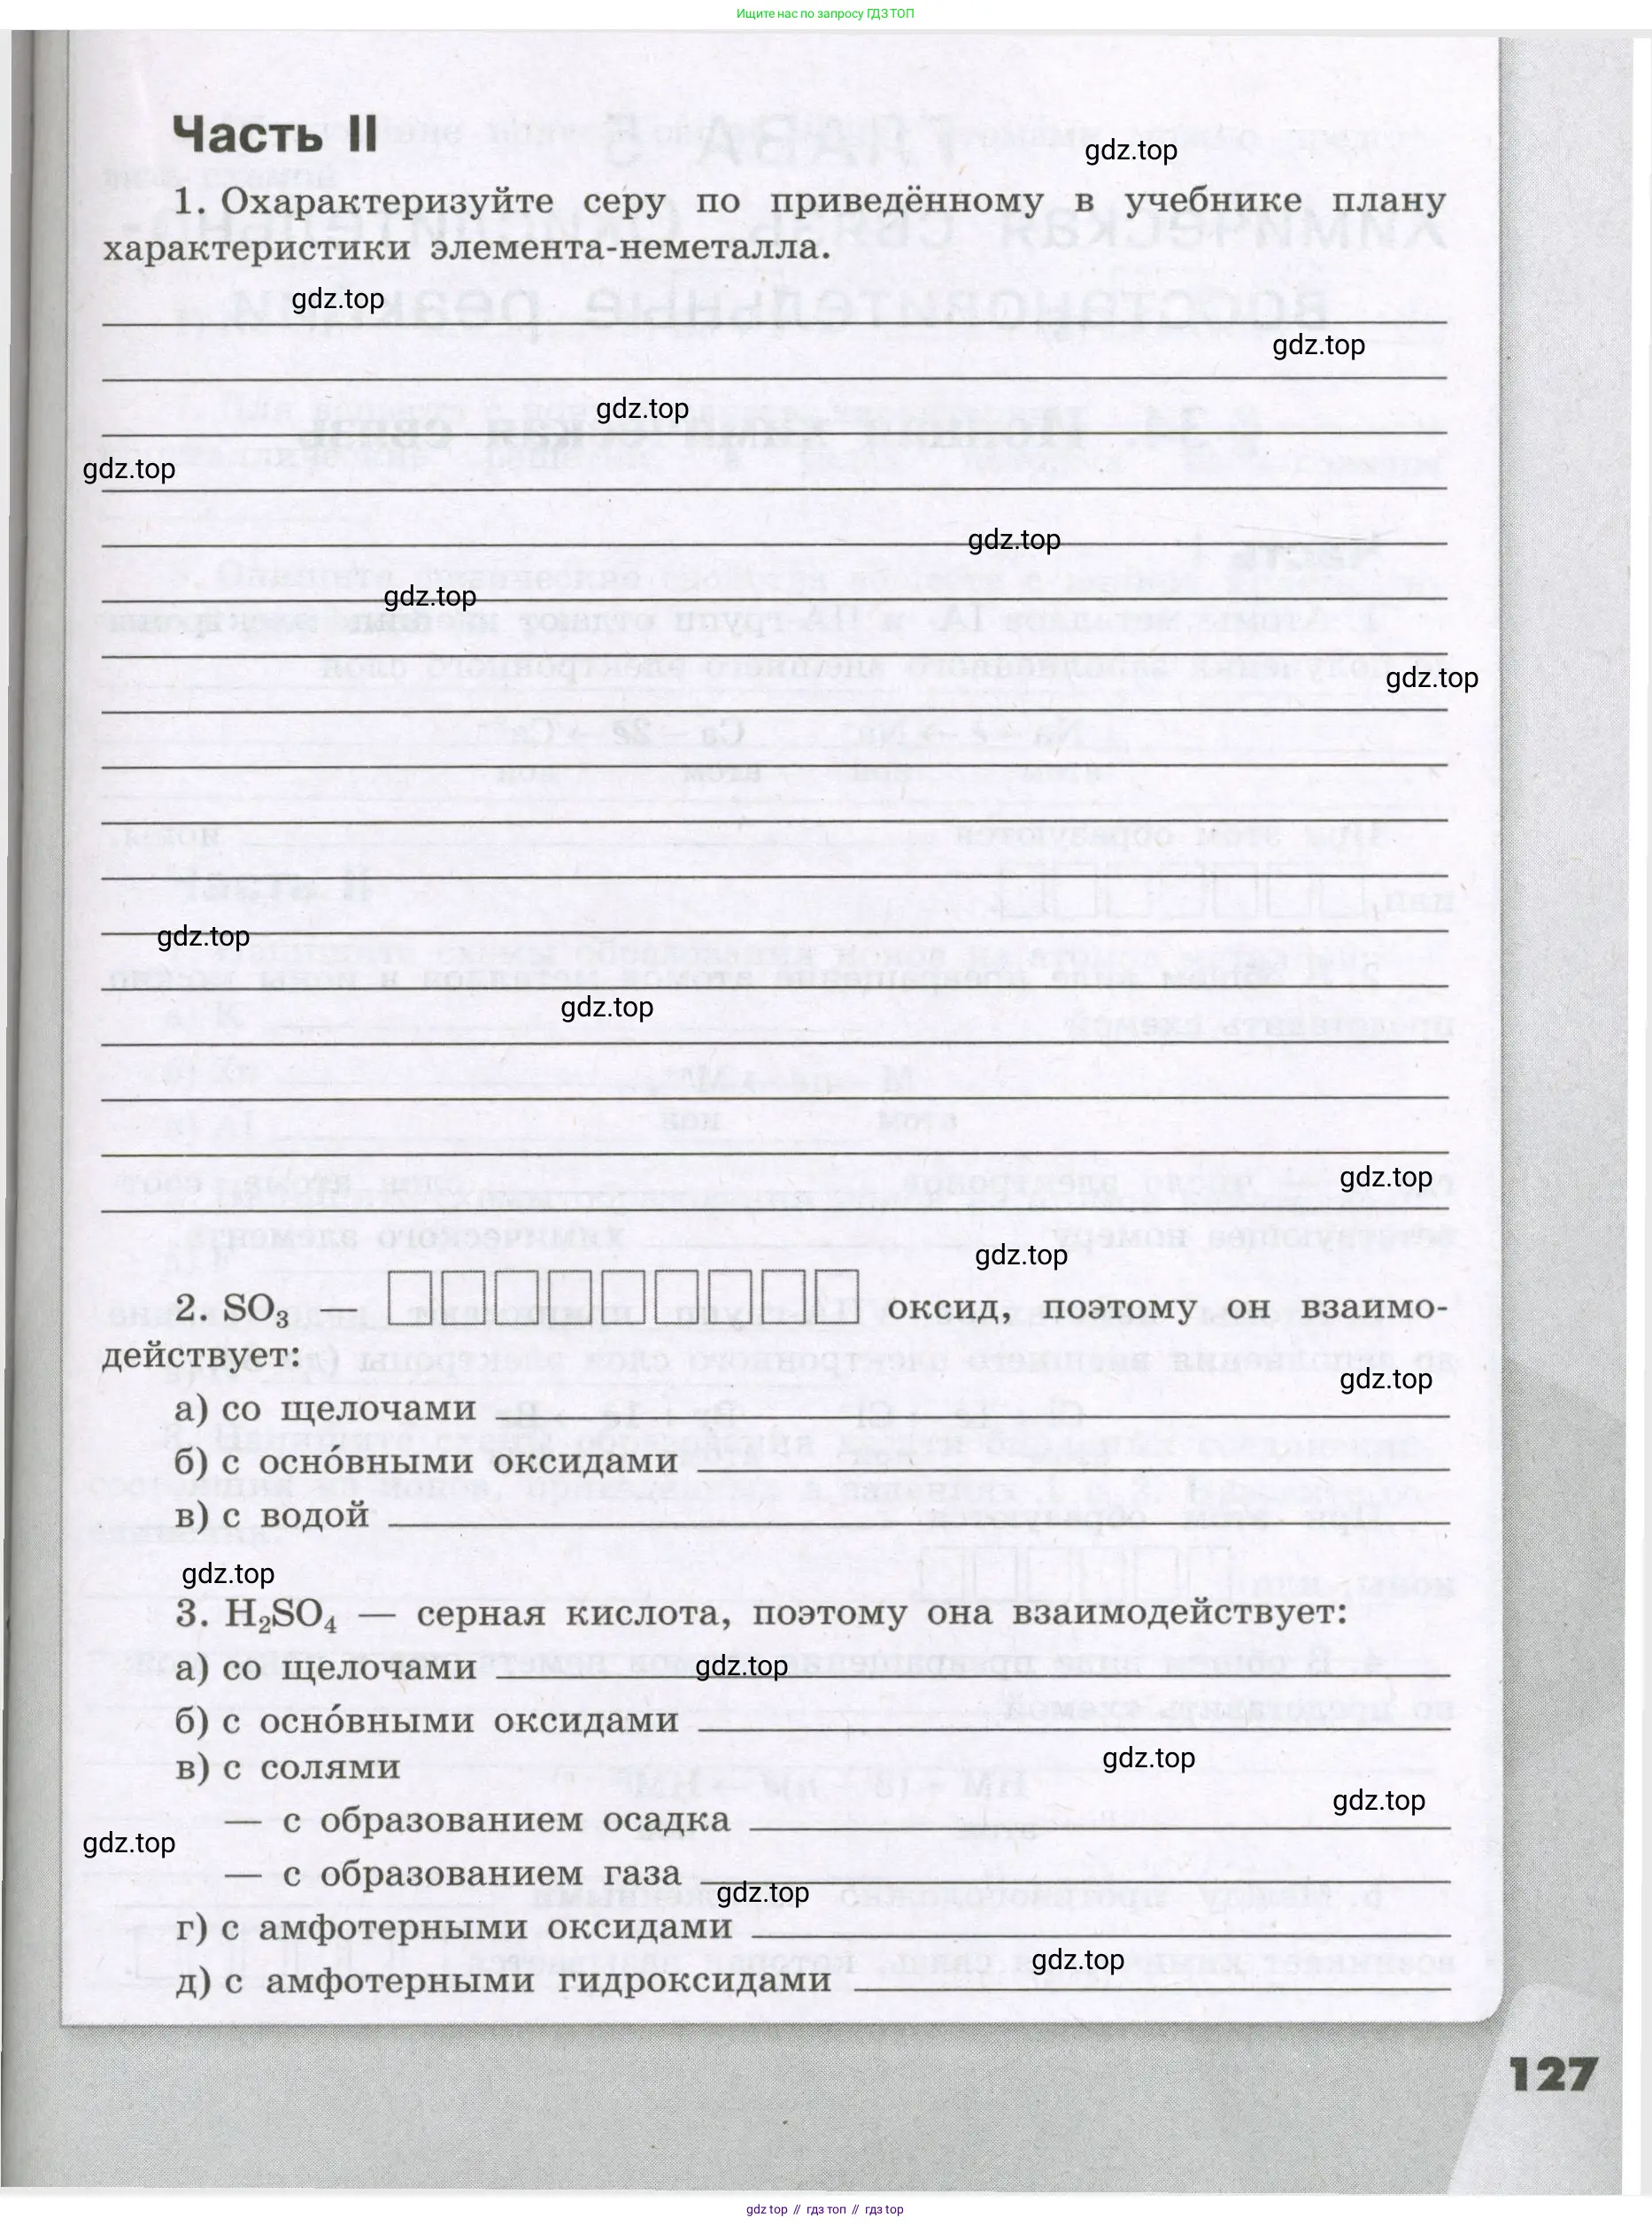 Ищите нас по запросу ГДЗ ТОП
Часть II
gdz.top
1. Охарактеризуйте серу по приведённому в учебнике плану
характеристики элемента-неметалла.
gdz.top
gdz.top
gdz.top
gdz.top
gdz.top
gdz.top
gdz.top
gdz.top
gdz.top
gdz.top
gdz.top
2. SO₃ — оксид, поэтому он взаимо-
действует:
gdz.top
а) со щелочами
б) с оснóвными оксидами
в) с водой
gdz.top
3. H₂SO₄ — серная кислота, поэтому она взаимодействует:
а) со щелочами gdz.top
б) с оснóвными оксидами
в) с солями
gdz.top
gdz.top
— с образованием осадка
gdz.top
— с образованием газа
gdz.top
г) с амфотерными оксидами
gdz.top
д) с амфотерными гидроксидами
127
gdz.top // гдз топ // гдз top